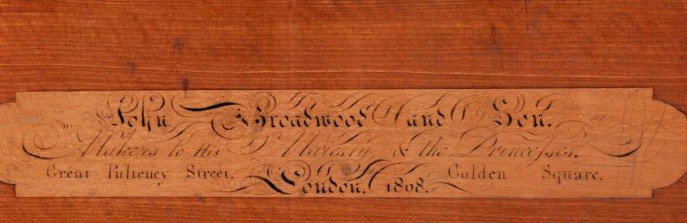 John Broadwood and Son.
Makers to His Majesty & the Princesses.
Great Pulteney Street, Golden Square,
London. 1808.